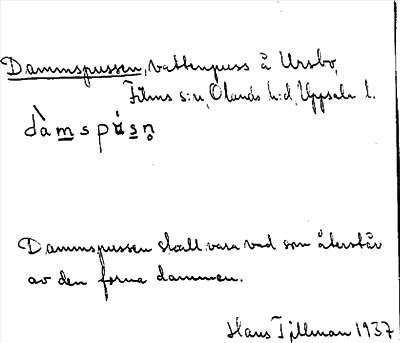 Dammspussen, vattenpuss å Ursbo,
Films s:n, Olands h:d, Uppsala l.
dàmspúsn̥
Dammspussen skall vara vad som återstår
av den forna dammen.
Hans Tjillman 1937